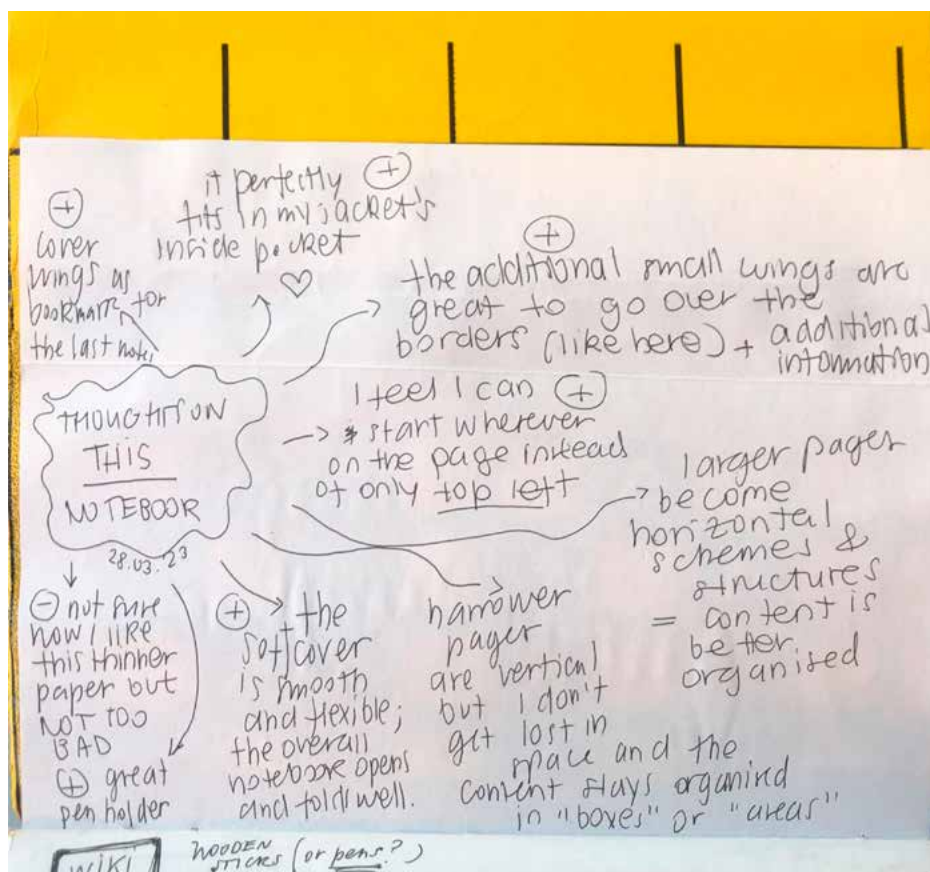 +
cover
wings as
bookmark for
the last notes
it perfectly +
fits in my jacket's
inside pocket
+
the additional small wings are
great to go over the
borders (like here) + additional
information
THOUGHTS ON
THIS
NOTEBOOK
28.03.23
I feel I can +
start wherever
on the page instead
of only top left
larger pages
become
horizontal
schemes &
structures
= content is
better
organised
- not sure
how I like
this thinner
paper but
NOT TOO
BAD
+ great
pen holder
+ the
softcover
is smooth
and flexible;
the overall
notebook opens
and folds well.
narrower
pages
are vertical
but I don't
get lost in
space and the
content stays organised
in "boxes" or "areas"
WIKI
WOODEN
STICKS (or pens?)